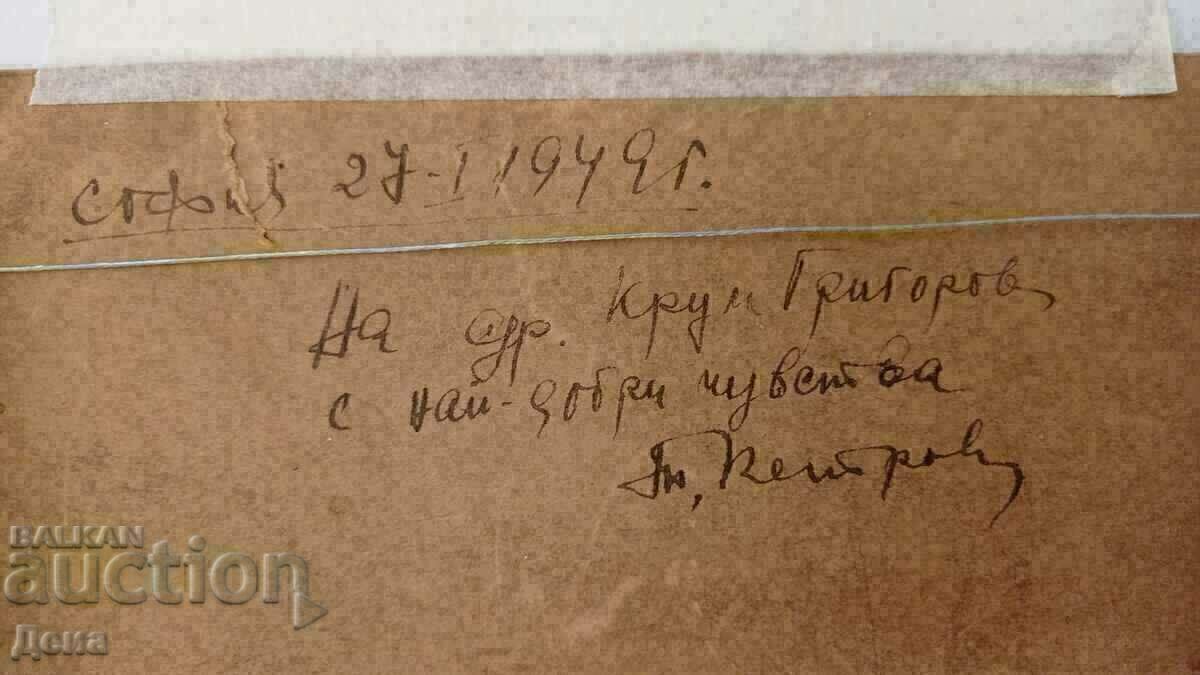 София 27-I 1949 г.
На др. Крум Григоров
с най-добри чувства
Петров
BALKAN
auction
Дена